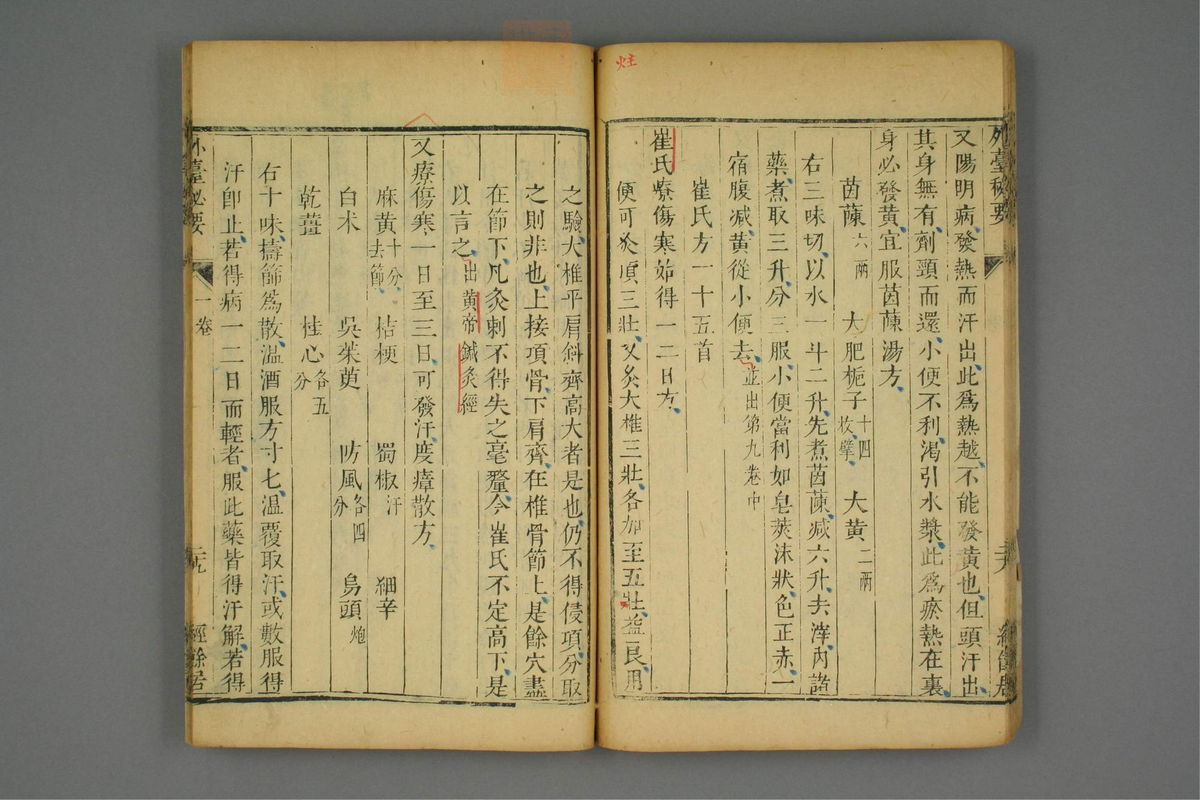 炷
外臺秘要
又陽明病發熱而汗出此爲熱越不能發黄也但頭汗出
其身無有劑頸而還小便不利渴引水漿此爲瘀熱在裏
身必發黄宜服茵蔯湯方
茵蔯六兩 大肥梔子十四枚擘 大黄二兩
右三味切以水一斗二升先煮茵蔯減六升去滓内諸
藥煮取三升分三服小便當利如皂莢沫狀色正赤一
宿腹減黄從小便去並出第九卷中
崔氏方一十五首
崔氏療傷寒始得一二日方
便可灸項三壯又灸大椎三壯各加至五壯益良用
之驗大椎平肩斜齊高大者是也仍不得侵項分取
之則非也上接項骨下肩齊在椎骨節上是餘穴盡
在節下凡灸刺不得失之毫釐今崔氏不定高下是
以言之出黄帝鍼灸經
又療傷寒一日至三日可發汗度瘴散方
麻黄十分去節 桔梗 蜀椒汗 細辛
白术 吳茱萸 防風各四分 烏頭炮
乾薑 桂心各五分
右十味擣篩爲散溫酒服方寸匕溫覆取汗或數服得
汗卽止若得病一二日而輕者服此藥皆得汗解若得
外臺秘要 一卷 二九 經餘居